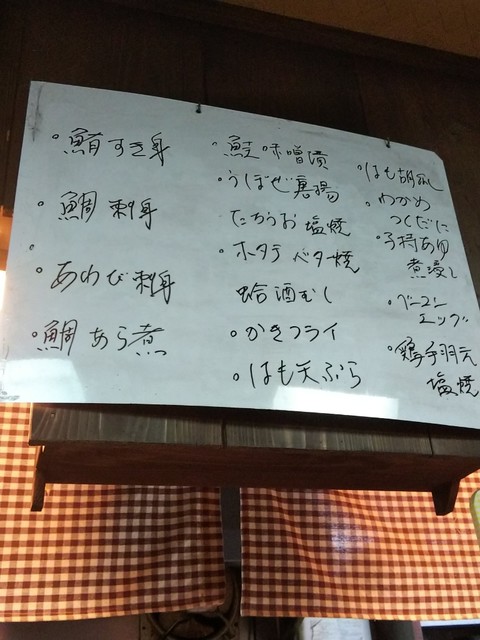 鮪すき身
鯛刺身
あわび刺身
鯛あら煮
鮭味噌漬
うぼぜ唐揚
たちうお塩焼
ホタテバター焼
蛤酒むし
かきフライ
はも天ぷら
はも胡瓜
わかめ
つくだに
子持あゆ
煮浸し
ベーコン
エッグ
鶏手羽元
塩焼